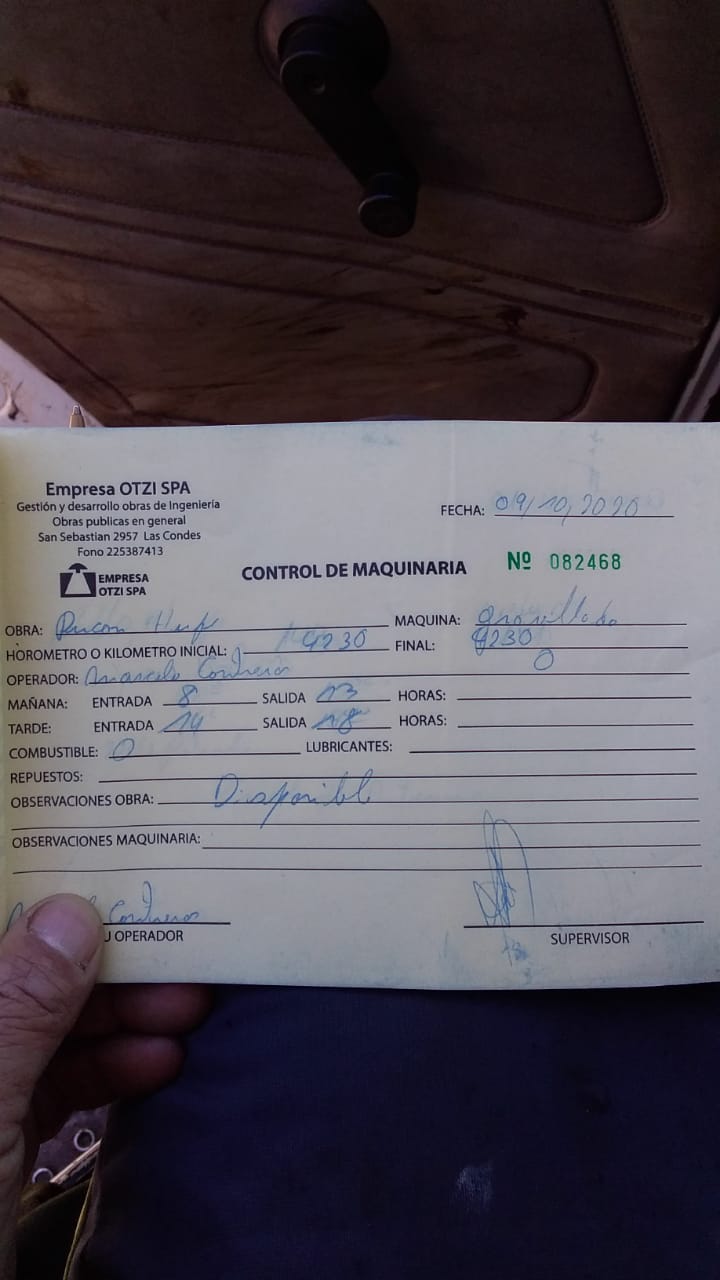 Empresa OTZI SPA
Gestión y desarrollo obras de Ingeniería
Obras publicas en general
San Sebastian 2957 Las Condes
Fono 225387413
EMPRESA
OTZI SPA
FECHA: 09/10,2020
CONTROL DE MAQUINARIA Nº 082468
OBRA: MAQUINA:
HOROMETRO O KILOMETRO INICIAL: 9230 FINAL: 9230
OPERADOR: Contreras 0
MAÑANA: ENTRADA 8 SALIDA 13 HORAS:
TARDE: ENTRADA 14 SALIDA 18 HORAS:
COMBUSTIBLE: 0 LUBRICANTES:
REPUESTOS:
OBSERVACIONES OBRA: Disponible
OBSERVACIONES MAQUINARIA:
Contreras
OPERADOR SUPERVISOR